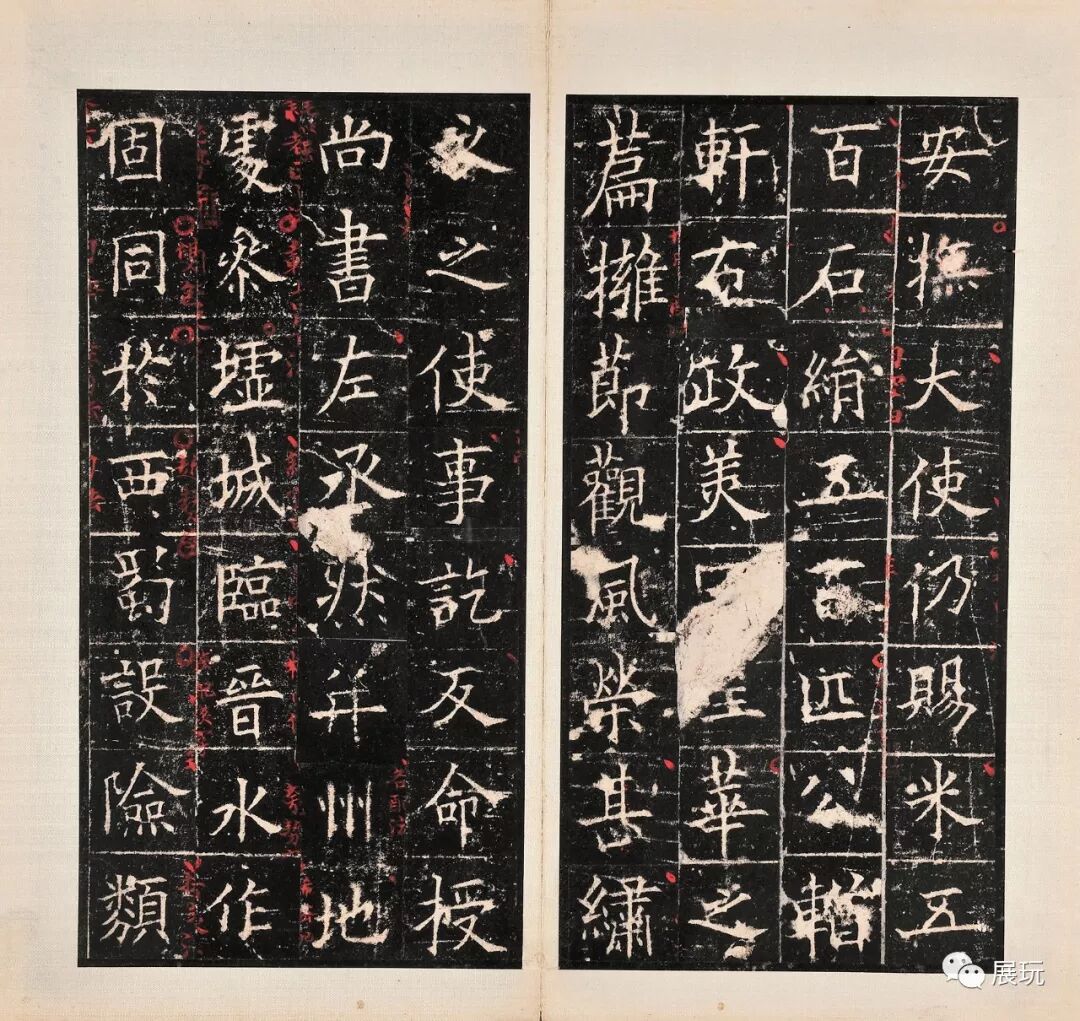 安撫大使仍賜米五
百石絹五百匹公輶
軒布政美華之
萹擁節觀風榮甚繡
衣之使事訖反命授
尚書左丞然并州地
處參墟城臨晉水作
固同於西蜀設險類
展玩